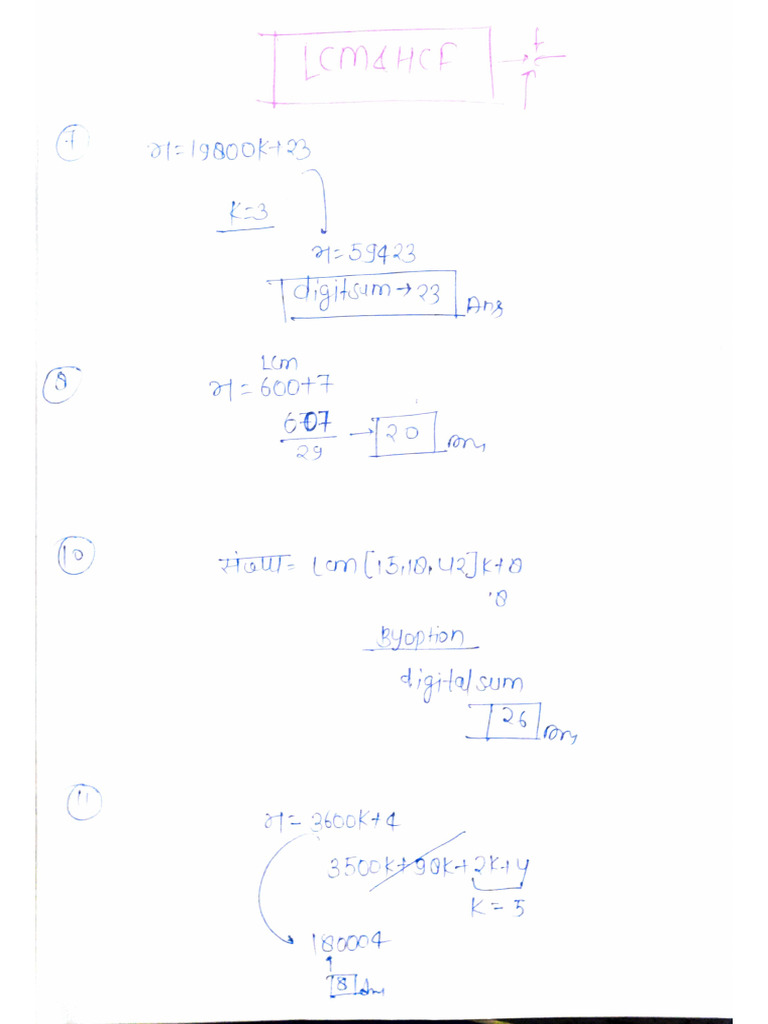 LCM & HCF
7
स = 19800K+23
K=3
स = 59423
digitsum → 23 Ans
8
Lcm
स = 600+7
607/29 → 20 Ans
10
संख्या = Lcm [15,18,42]K+8
8
By option
digital sum
26 Ans
11
स = 3600K+4
3500K+98K+2K+4
K=5
180004
8 Ans